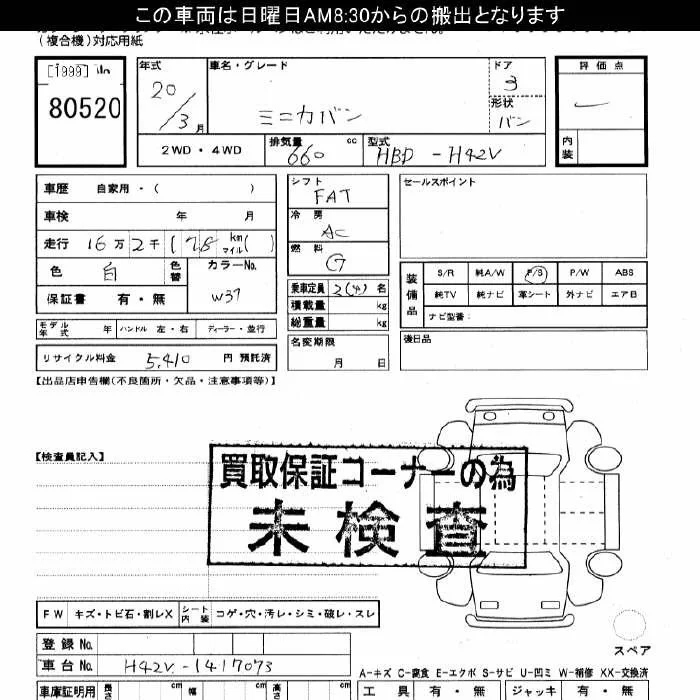 この車両は日曜日AM8:30からの搬出となります
(複合機)対応用紙
[1999]
80520
年式
20/3月
車名・グレード
ミニカバン
ドア
3
形状
バン
評価点
内装
2WD・4WD
排気量 660 cc
型式 HBD-H42V
車歴 自家用・( )
車検 年 月
走行 16万2千178 km マイル( )
色 白 色替
カラーNo. W37
保証書 有・無
シフト FAT
冷房 AC
燃料 G
乗車定員 2(4)名
積載量 kg
総重量 kg
セールスポイント
装備品
S/R 純A/W P/S P/W ABS
純TV 純ナビ 革シート 外ナビ エアB
ナビ型番:
モデル年式 年 ハンドル 左・右 ディーラー・並行
名変期限 月 日
後日品
リサイクル料金 5,410 円 預託済
【出品店申告欄(不良箇所・欠品・注意事項等)】
【検査員記入】
買取保証コーナーの為
未検査
FW キズ・トビ石・割レX シート内装 コゲ・穴・汚レ・シミ・破レ・スレ
スペア
登録No.
車台No. H42V-1417073
A-キズ C-腐食 E-エクボ S-サビ U-凹ミ W-補修 XX-交換済
車庫証明用 長さ cm 幅 cm 高さ cm
工具 有・無 ジャッキ 有・無